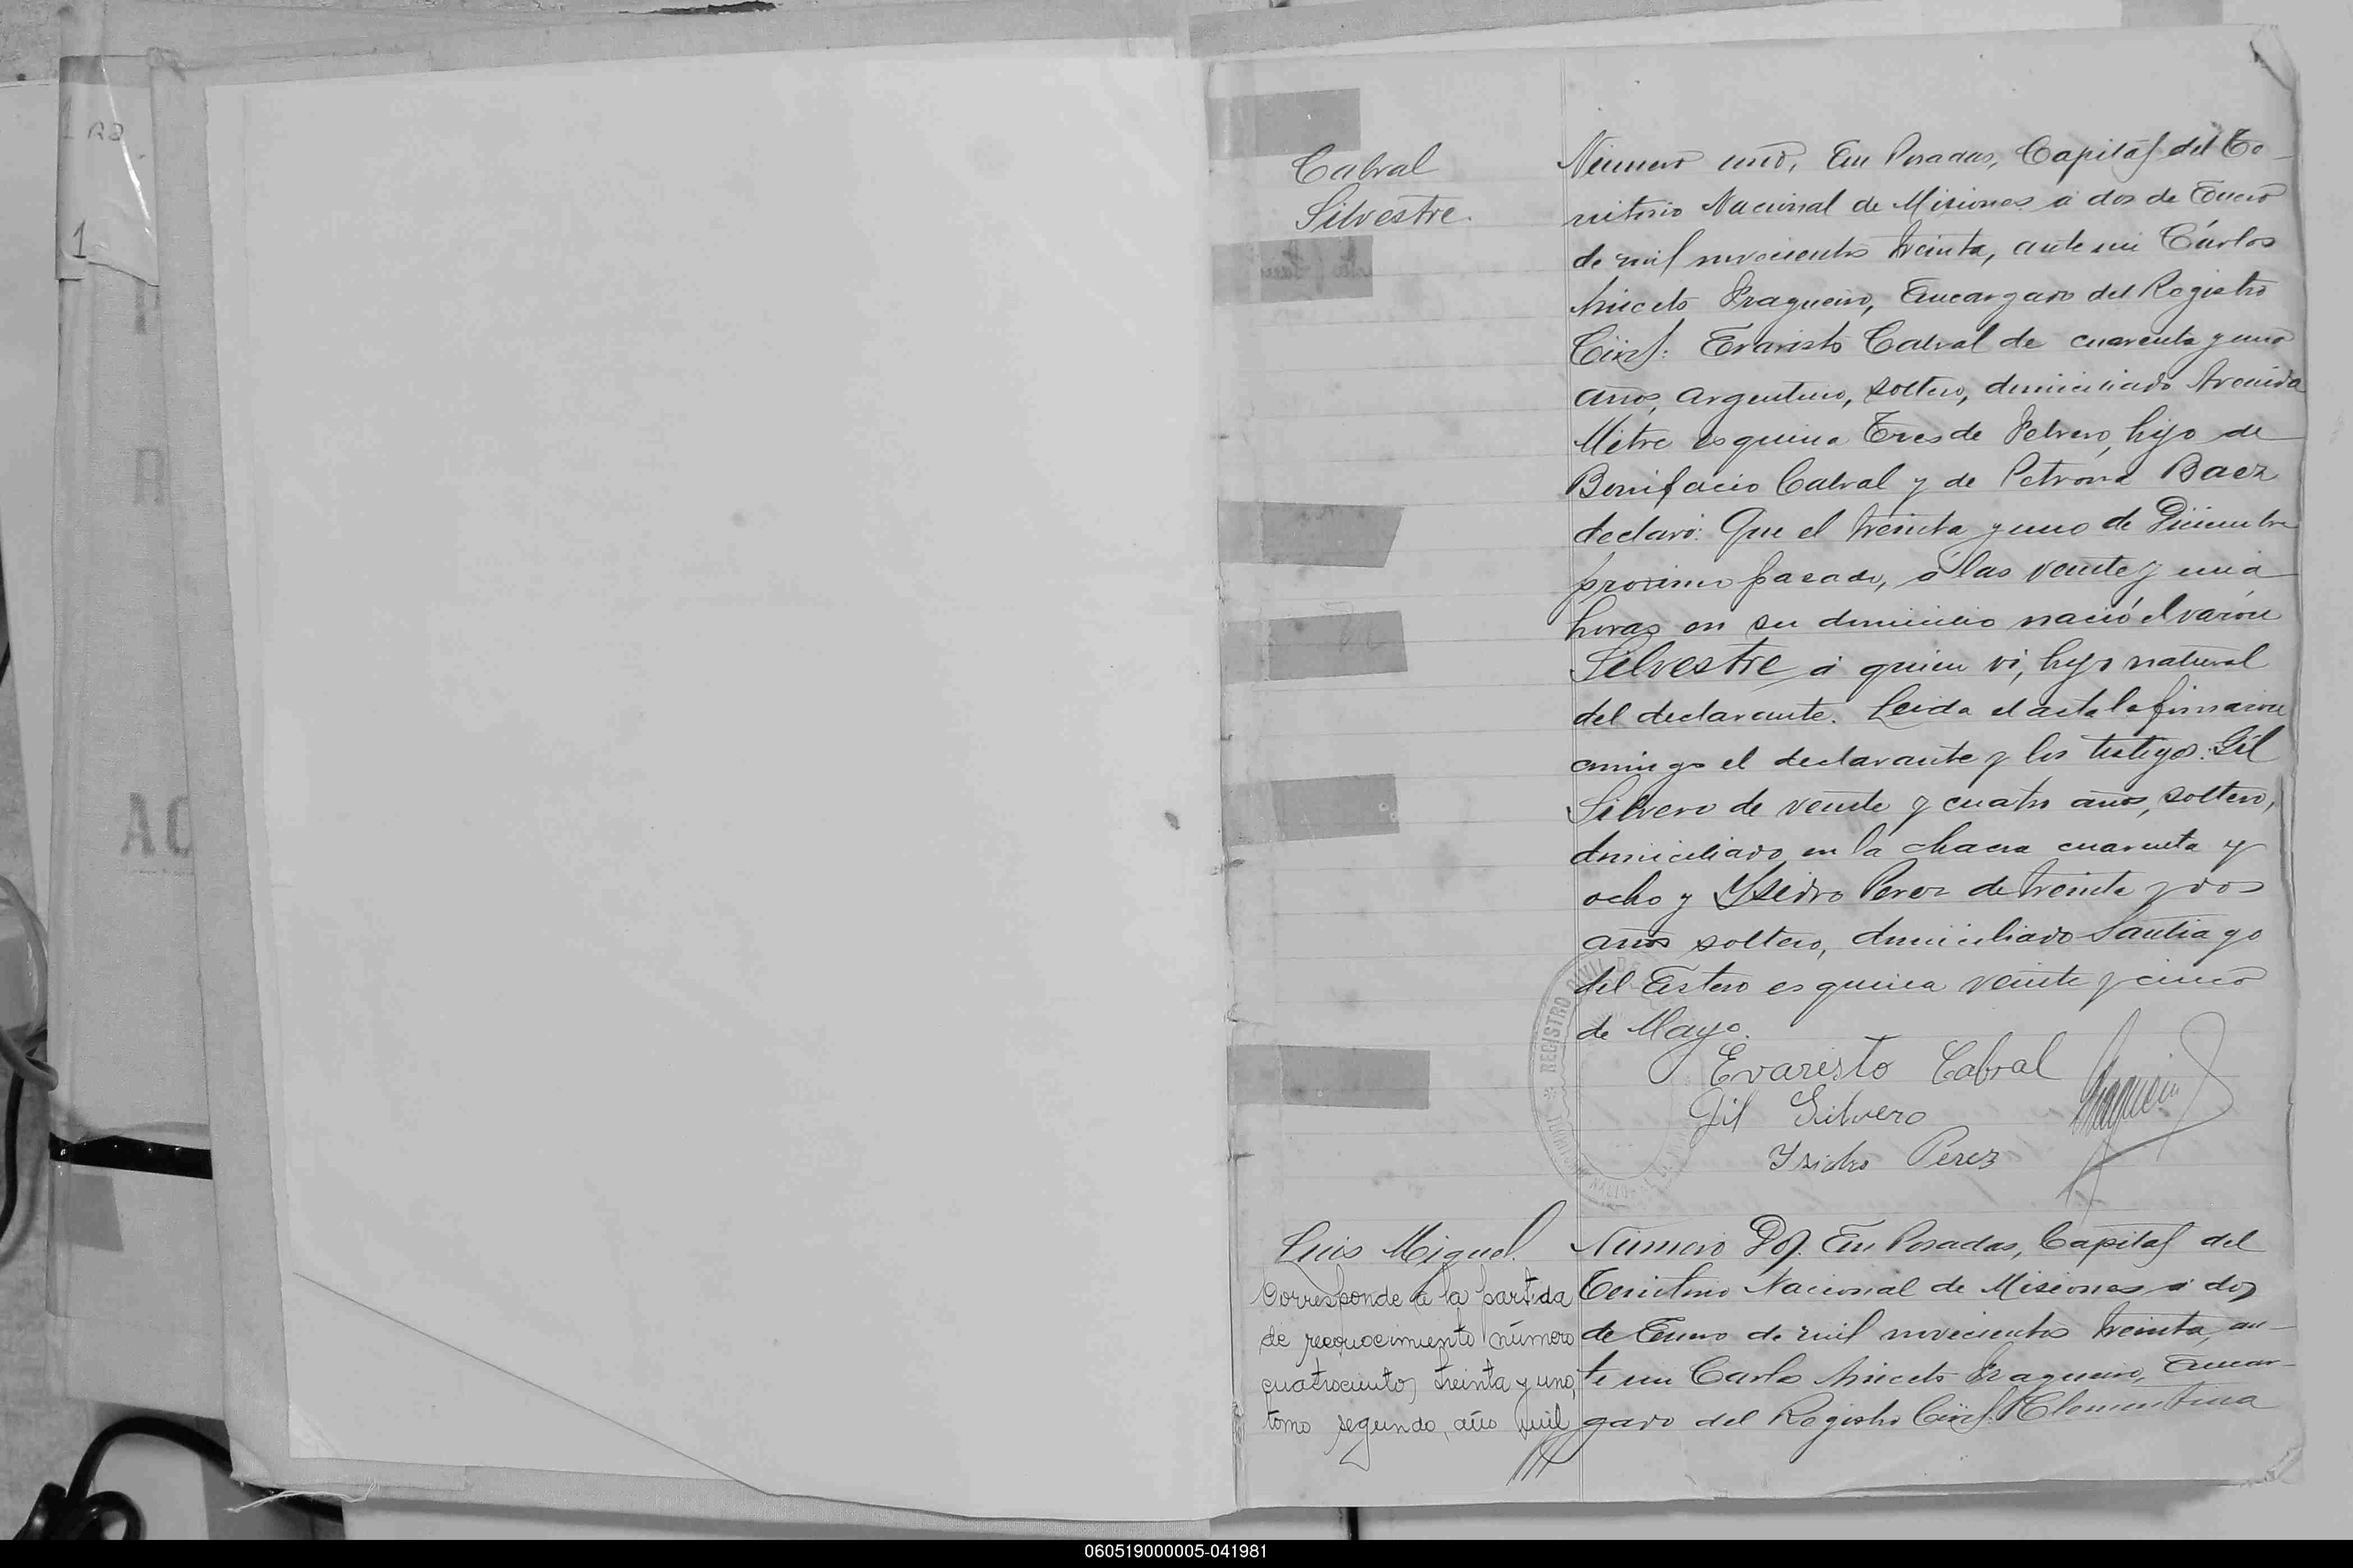 1 R2
1
R
AC
Cabral
Silvestre.
Número uno, En Posadas, Capital del Te-
rritorio Nacional de Misiones a dos de Enero
de mil novecientos treinta, ante mi Cárlos
Aniceto Fragueiro, Encargado del Registro
Civil: Evaristo Cabral de cuarenta y uno
años, argentino, soltero, domiciliado Avenida
Mitre esquina Tres de Febrero, hijo de
Bonifacio Cabral y de Petrona Baez
declaró: Que el treinta y uno de Diciembre
proximo pasado, á las veinte y una
horas en su domicilio nació el varón
Silvestre á quien ví, hijo natural
del declarante. Leida el acta la firmaron
conmigo el declarante y los testigos: Gil
Silvero de veinte y cuatro años, soltero,
domiciliado en la chacra cuarenta y
ocho y Ysidro Perez de treinta y dos
años soltero, domiciliado Santiago
del Estero esquina veinte y cinco
de Mayo.
REGISTRO CIVIL
Evaristo Cabral
Gil Silvero
Isidro Perez
Fragueiro
Luis Miguel.
Corresponde a la partida
de reconocimiento número
cuatrocientos treinta y uno,
tomo segundo, año mil
Número Dos. En Posadas, Capital del
Territorio Nacional de Misiones a dos
de Enero de mil novecientos treinta, an-
te mi Carlos Aniceto Fragueiro, Encar-
gado del Registro Civil: Clementina
060519000005-041981